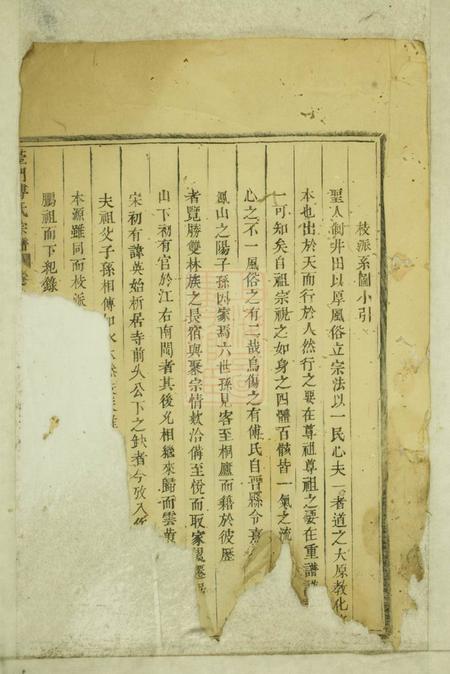 枝派系圖小引
聖人制井田以厚風俗立宗法以一民心夫一者道之大原教化
本也出於天而行於人然行之要在尊祖尊祖之要在重譜
一可知矣自祖宗視之如身之四體百骸皆一氣之流
心之不一風俗之有二哉烏傷之有傅氏自晋縣令
鳳山之陽子孫因家焉六世孫 客至桐廬而籍於彼歷
者覽勝雙林族之長宿與聚宗情欵洽偹至悅而取家
山下初有官於江右南閩者其後允相繼來歸而雲黄
宋初有諱英始析居寺前頭公下之缺者今攷入
夫祖父子孫相傳如水木
本源雖同而枝派
鵬祖而下。錄
門傅氏宗譜